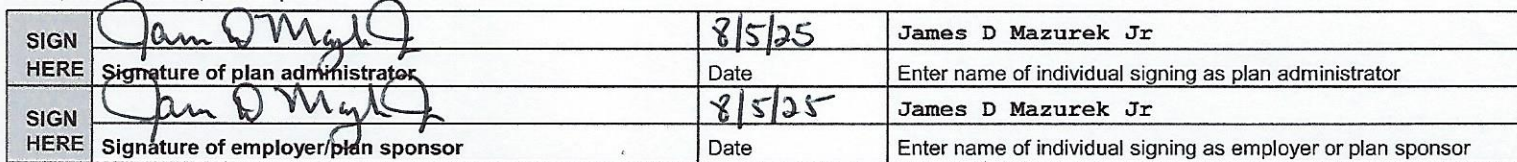 SIGN HERE
8/5/25
James D Mazurek Jr
Signature of plan administrator
Date
Enter name of individual signing as plan administrator
SIGN HERE
8/5/25
James D Mazurek Jr
Signature of employer/plan sponsor
Date
Enter name of individual signing as employer or plan sponsor